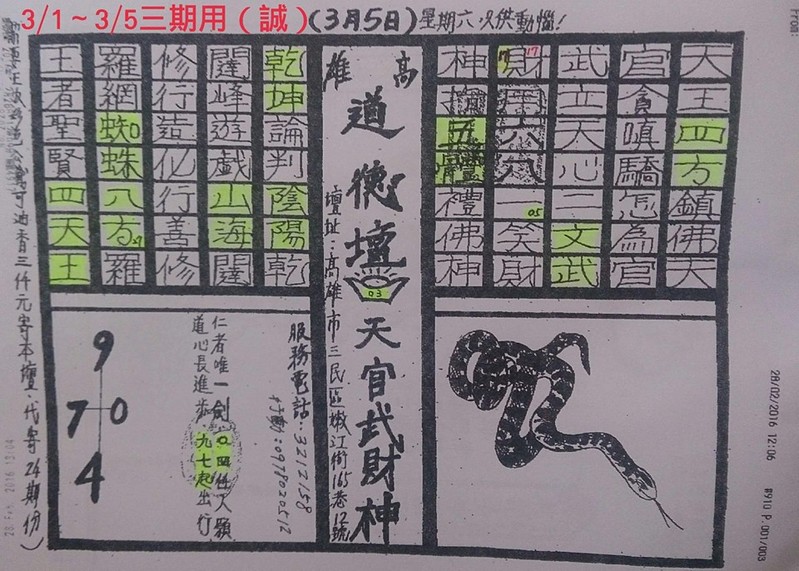 3/1～3/5三期用（誠）(3月5日)星期六 只供動惱!
天王四方鎮佛天
官貪嗔驕怎為官
武立天心二文武
財 17
六八一笑財
05
神
五
禮佛神
高雄
道德壇
03
天官武財神
壇址:高雄市三民區嫩江街165巷12號
乾坤論判陰陽乾
闥峰遊戲山海闥
修行造化行善修
羅網蜘蛛八方羅
王者聖賢四天王
服務電話:3212158
仁者唯一劍
道心長進步
九七起出行
9
7 0
4
可油香三仟元寄本壇·代寄24期份)
28/02/2016 12:06
#910 P.001/003
From: